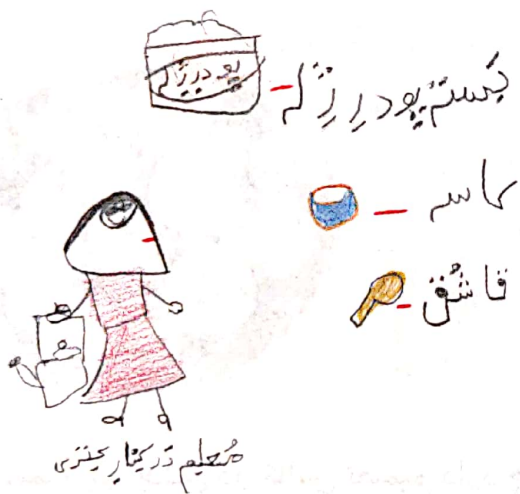 پودر ژله
بَستِۀ پودرِ ژِله
کاسه
قاشُق
مُعلِم دَر کِنارِ